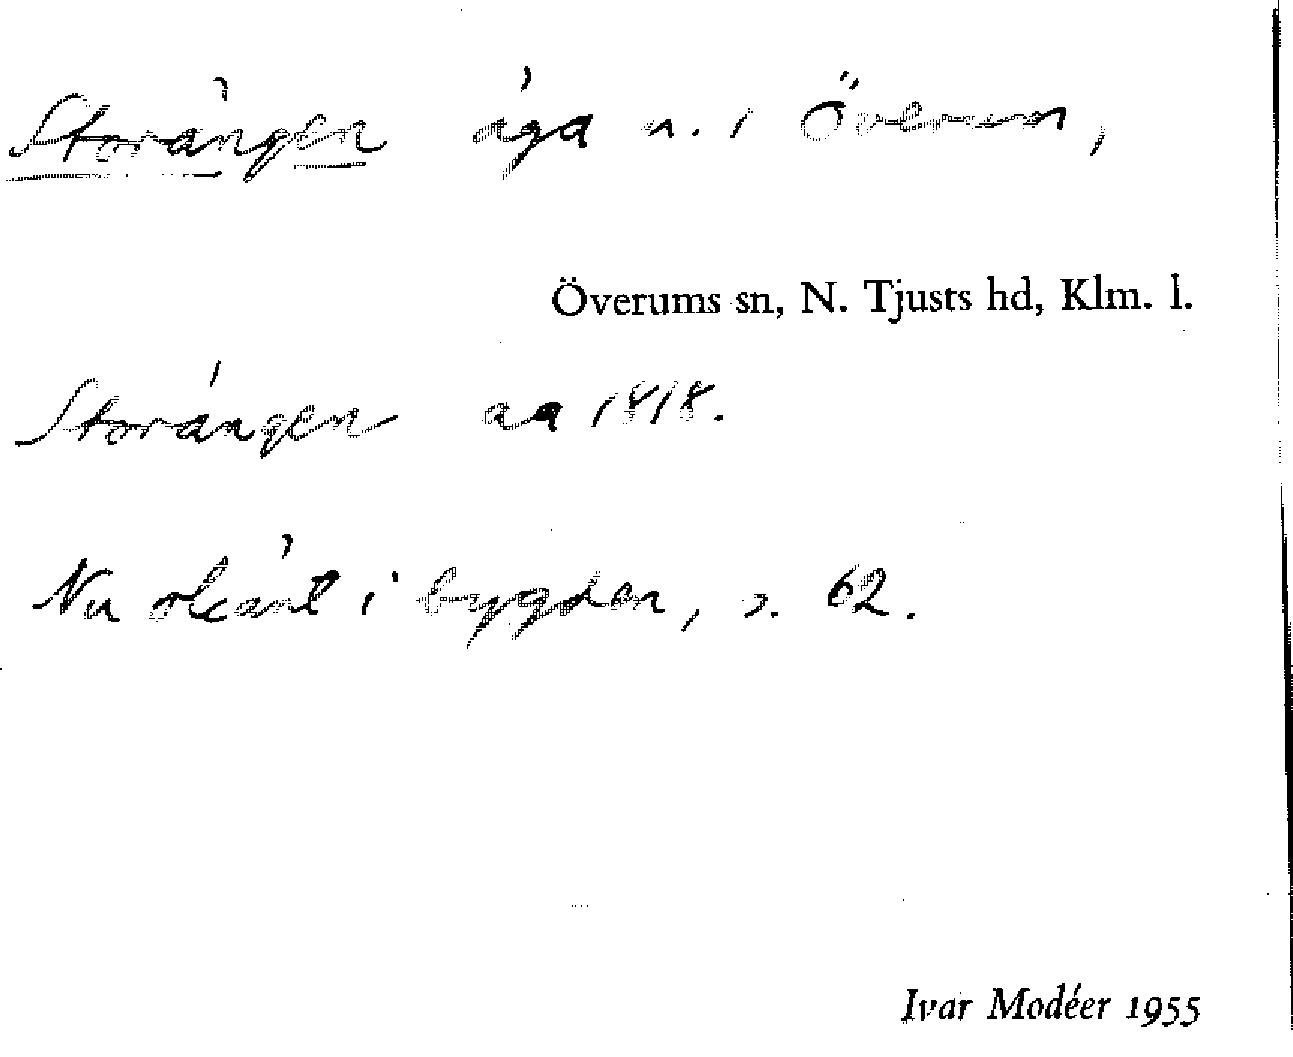 Storängen äga n. i Överum,
Överums sn, N. Tjusts hd, Klm. l.
Storängen aa 1818.
Nu okänt i bygden, s. 62.
Ivar Modéer 1955